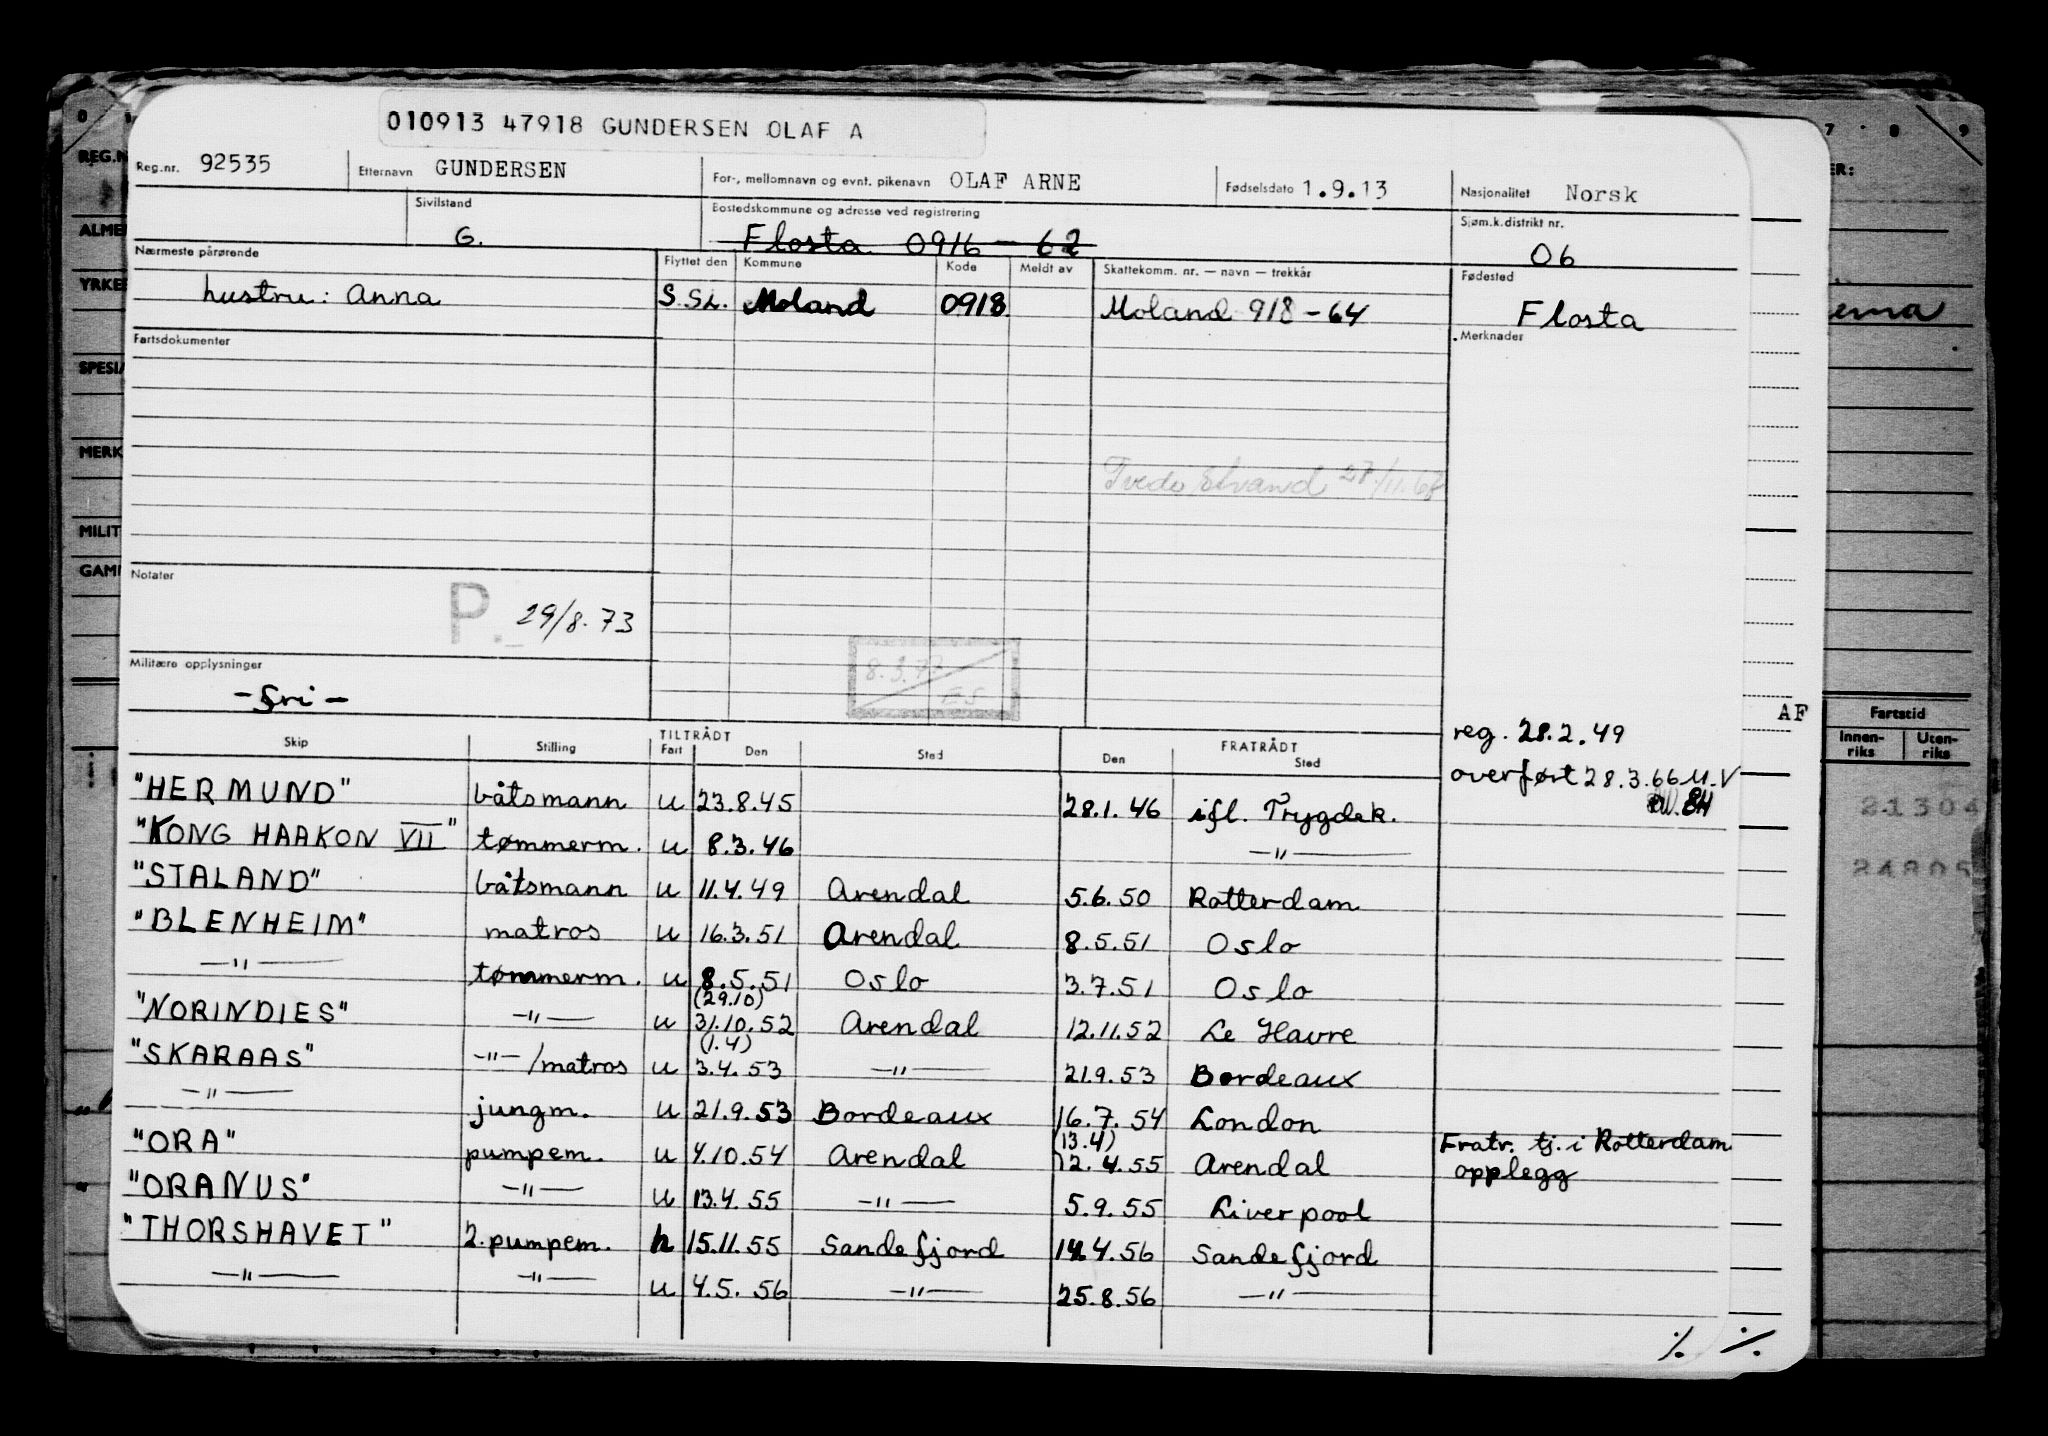 010913 47918 GUNDERSEN OLAF A
Reg.nr. 92535 Etternavn GUNDERSEN For-, mellomnavn og evnt. pikenavn OLAF ARNE Fødselsdato 1.9.13 Nasjonalitet Norsk
Sivilstand G. Bostedskommune og adresse ved registrering Flosta 0916 - 62 Sjøm.k.distrikt nr. 06
Nærmeste pårørende Flyttet den Kommune Kode Meldt av Skattekomm. nr. — navn — trekkår Fødested
hustru: Anna S.SL. Moland 0918 Moland 918-64 Flosta
Fartsdokumenter Merknader
Tvedestrand 27/11.68
Notater
P. 29/8.73
8.3.72
ES
Militære opplysninger
- fri -
reg. 28.2.49
overført 28.3.66 M.V
84
Skip Stilling TILTRÅDT Fart Den Sted FRATRÅDT Den Sted
"HERMUND" båtsmann u 23.8.45 28.1.46 ifl. Trygdek.
"KONG HAAKON VII" tømmerm. u 8.3.46 —"—
"STALAND" båtsmann u 11.4.49 Arendal 5.6.50 Rotterdam
"BLENHEIM" matros u 16.3.51 Arendal 8.5.51 Oslo
—"— tømmerm. u 8.5.51 Oslo 3.7.51 Oslo
(29.10)
"NORINDIES" —"— u 31.10.52 Arendal 12.11.52 Le Havre
(1.4)
"SKARAAS" —"—/matros u 3.4.53 —"— 21.9.53 Bordeaux
—"— jungm. u 21.9.53 Bordeaux 16.7.54 London
(13.4)
"ORA" pumpem. u 4.10.54 Arendal 12.4.55 Arendal Fratr. tj. i Rotterdam
opplegg
"ORANUS" —"— u 13.4.55 —"— 5.9.55 Liverpool
"THORSHAVET" 2.pumpem. h 15.11.55 Sandefjord 14.4.56 Sandefjord
—"— —"— u 4.5.56 —"— 25.8.56 —"—
·/. ·/.
0
REG.N
ALME
YRKE
SPESIA
MERK
MILIT
GAM
7 8 9
ER:
AF
Fartstid
Innen-
riks
Uten-
riks
21304